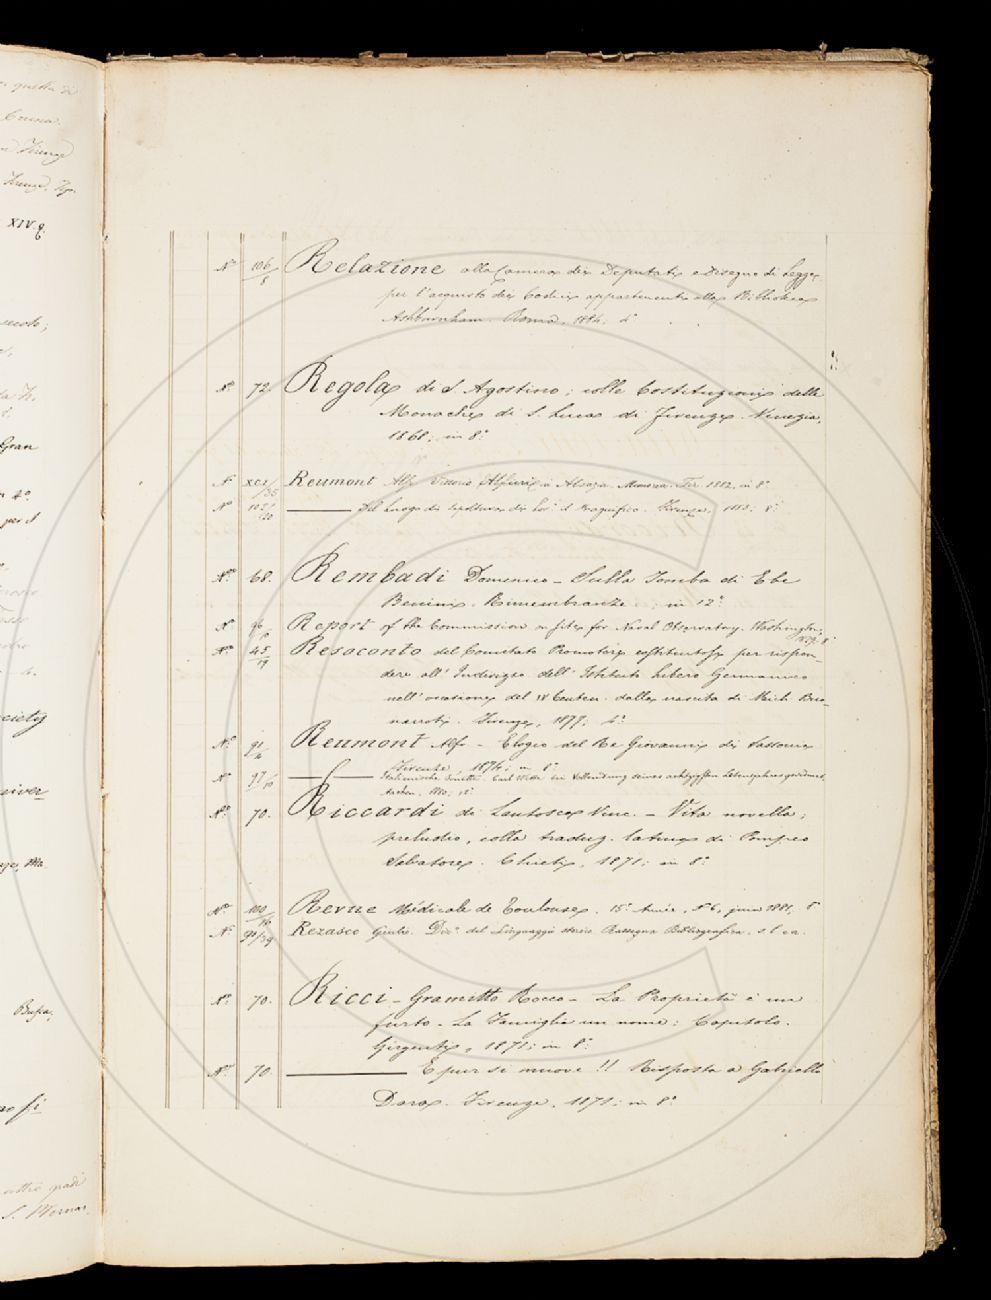 No 106/8 Relazione alla Camera dei Deputati e Disegno di Legge
per l'acquisto dei Codici appartenenti alla Biblioteca
Ashburnham. Roma, 1884; 4°
No 72. Regola di S. Agostino; colle Costituzioni delle
Monache di S. Luca di Firenze. Venezia,
1868; in 8°.
No XCI/35 Reumont Alf. Vittorio Alfieri in Alsazia. Memoria. Fir. 1882, in 8°
No 102/20 ——— Del luogo di sepoltura di Lor. il Magnifico. Firenze, 1883; 8°
No 68. Rembadi Domenico – Sulla Tomba di Ebe
Benini. Rimembranze; in 12°
No 96/10 Report of the Commission on Sites for Naval Observatory. Washington,
1879. 8°
No 45/19 Resoconto del Comitato Promotore costituitosi per rispon-
dere all' Indirizzo dell' Istituto libero Germanico
nell' occasione del IV Centen. dalla nascita di Mich. Buo-
narroti. Firenze, 1877; 4°
No 91/ Reumont Alfr. – Elogio del Re Giovanni di Sassonia
Firenze, 1874; in 8°
No 97/10 ——— Italienische Sonette. Carl Witte bei Vollendung seines achtzigsten Lebensjahres gewidmet.
Aachen, 1880; 12°
No 70. Riccardi di Lantosca Vinc. – Vita novella;
preludio, colla traduz. latina di Pompeo
Salvatore. Chieti, 1871; in 8°
No 100/16 Revue Médicale de Toulouse. 15e Année, No 6, juin 1881, 8°
No 90/39 Rezasco Giulio. Diz. del Linguaggio storico. Rassegna Bibliografica. s. l. e a.
No 70. Ricci – Gramitto Rocco – La Proprietà è un
furto – La Famiglia un nome: Capitolo.
Girgenti, 1871; in 8°
No 70. ——— E pur si muove!! Risposta a Gabriello
Dara. Firenze, 1871; in 8°
XIV. 8.
Gran
per il